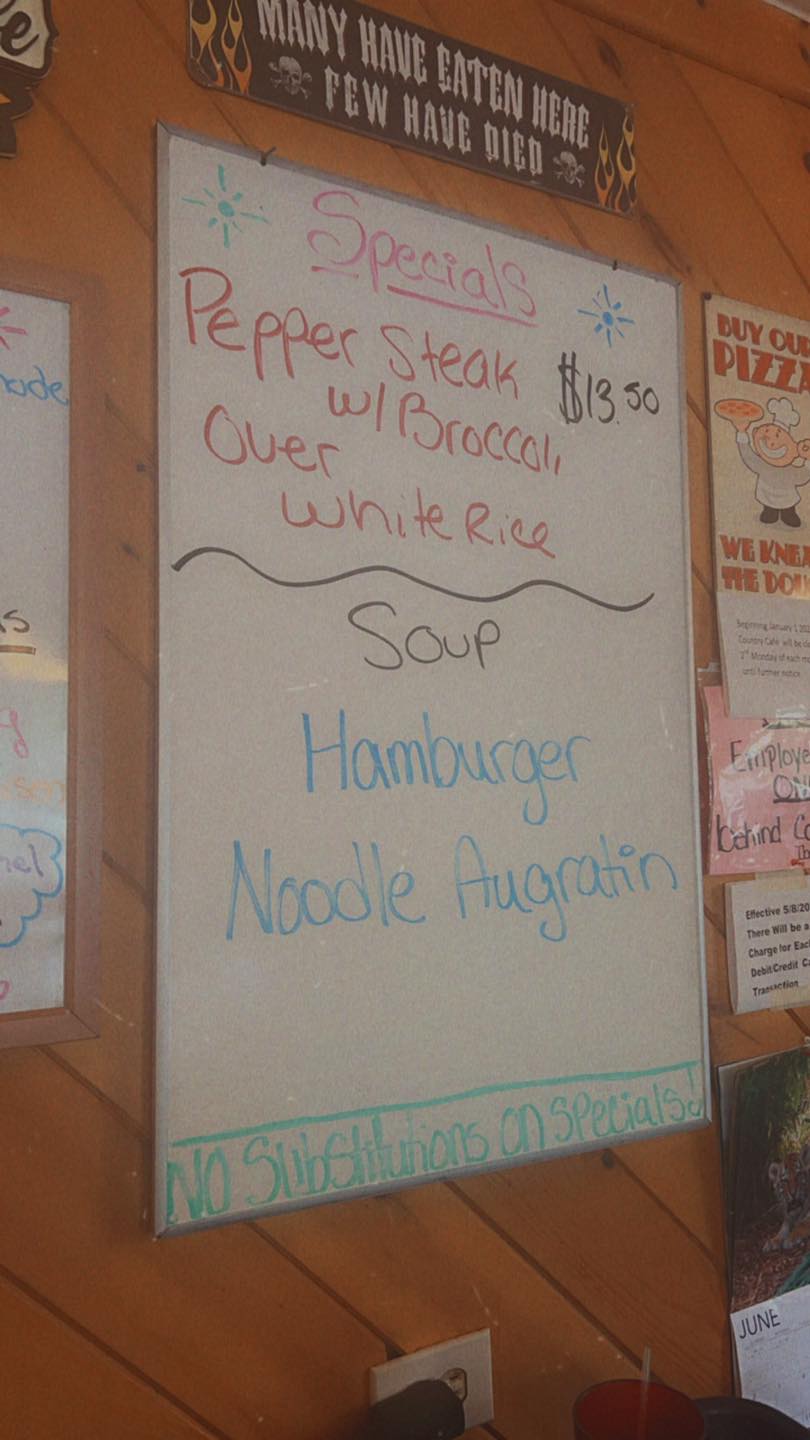 MANY HAVE EATEN HERE
FEW HAVE DIED
Specials
Pepper Steak $13.50
w/ Broccoli
Over
White Rice
Soup
Hamburger
Noodle Augratin
NO Substitutions on specials!
BUY OUR
PIZZA
WE KNEA
THE DOU
Beginning January 1, 202
Country Cafe will be clo
1st Monday of each mo
until further notice
Employe
ON
behind Co
Effective 5/8/20
There Will be a
Charge for Eac
Debit/Credit Ca
Transaction
JUNE